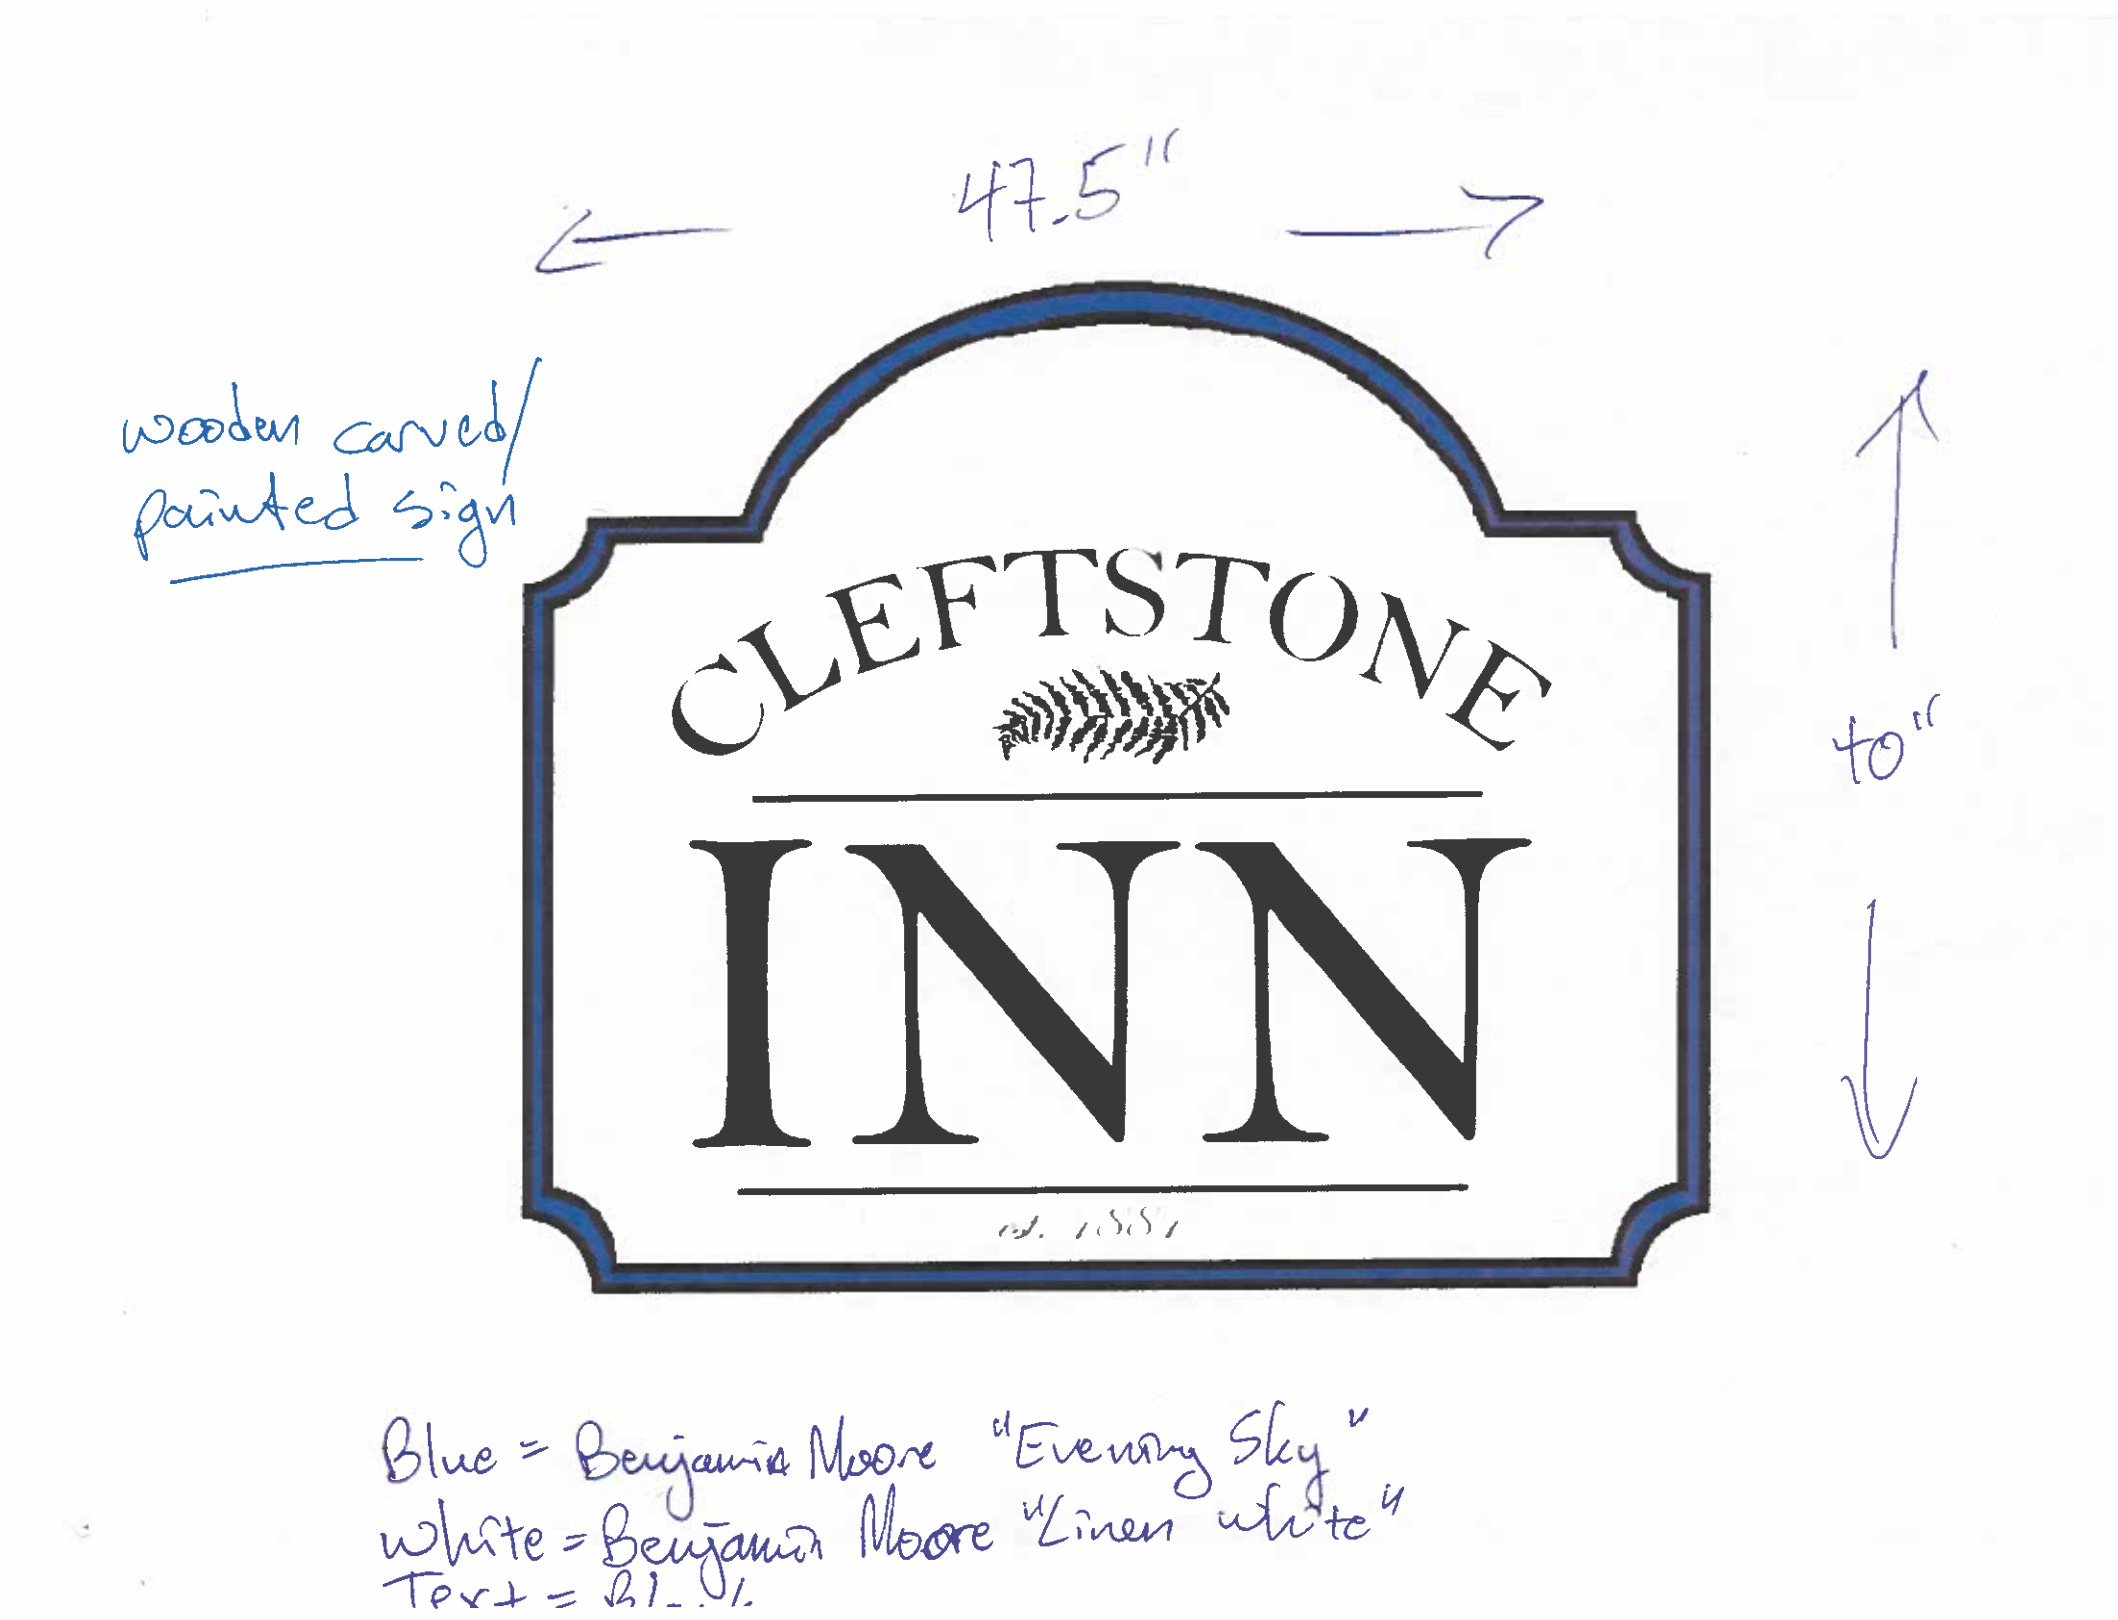 47.5"
wooden carved/
painted sign
CLEFTSTONE
40"
INN
est. 1881
Blue = Benjamin Moore "Evening Sky"
White = Benjamin Moore "Linen white"
Text = Black